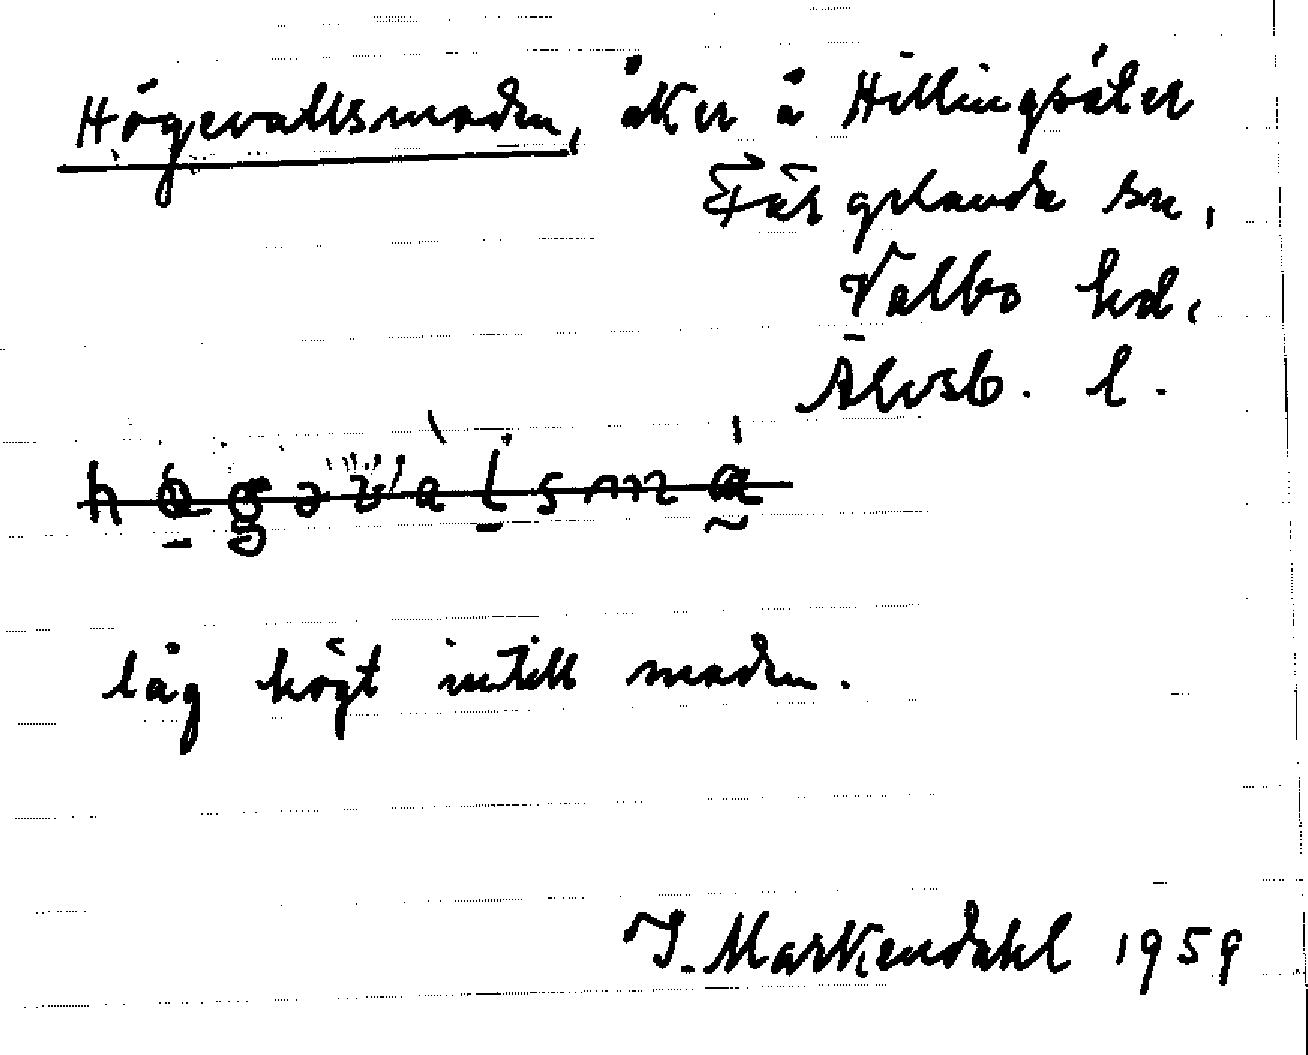 Högevallsmaden, åker å Hillingsäter
Färgelanda sn,
Valbo hd,
Älvsb. l.
låg högt intill maden.
J. Markendahl 1959